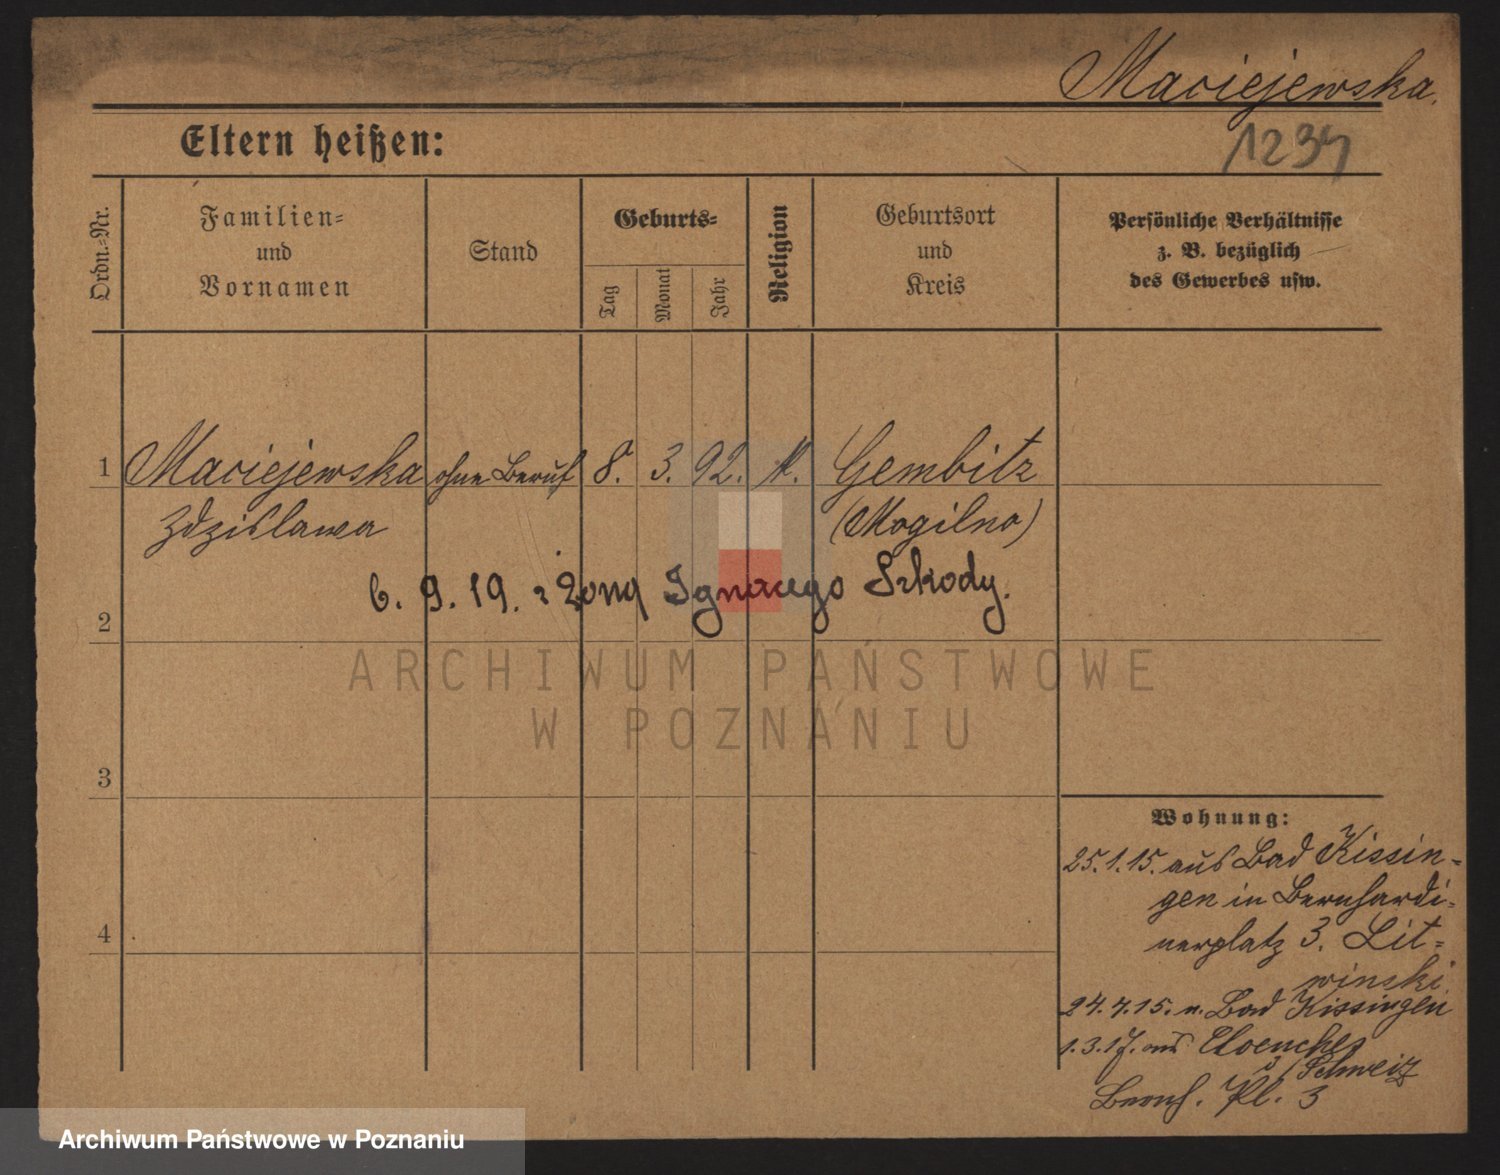 Maciejewska.
1234
Eltern heißen:
Ordn.-Nr.
Familien-
und
Vornamen
Stand
Geburts-
Tag
Monat
Jahr
Religion
Geburtsort
und
Kreis
Persönliche Verhältnisse
z. B. bezüglich
des Gewerbes usw.
1 Maciejewska ohne Beruf 8. 3. 92. k. Gembitz
Zdzislawa (Mogilno)
6. 9. 19. : żoną Ignacego Szkody.
2
ARCHIWUM PAŃSTWOWE
W POZNANIU
3
4
Wohnung:
25.1.15. aus Bad Kissin-
gen in Bernhardi-
nerplatz 3. Lit-
winski
24.4.15. n. Bad Kissingen
1.3.17. aus
/Schweiz
Bernh. Pl. 3
Archiwum Państwowe w Poznaniu